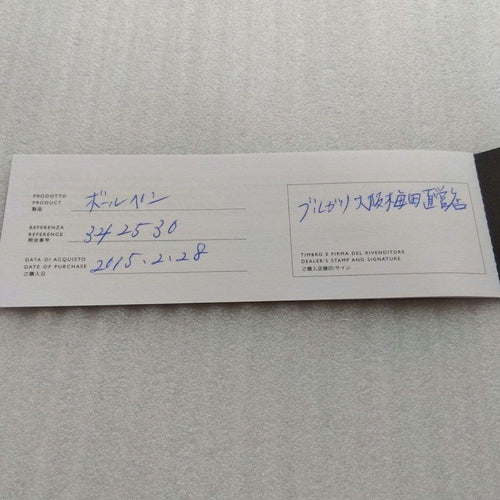 PRODOTTO
PRODUCT
製品
ボールペン
REFERENZA
REFERENCE
照会番号
342530
DATA DI ACQUISTO
DATE OF PURCHASE
ご購入日
2015.2.28
ブルガリ大阪梅田直営店
TIMBRO E FIRMA DEL RIVENDITORE
DEALER'S STAMP AND SIGNATURE
ご購入店舗印/サイン